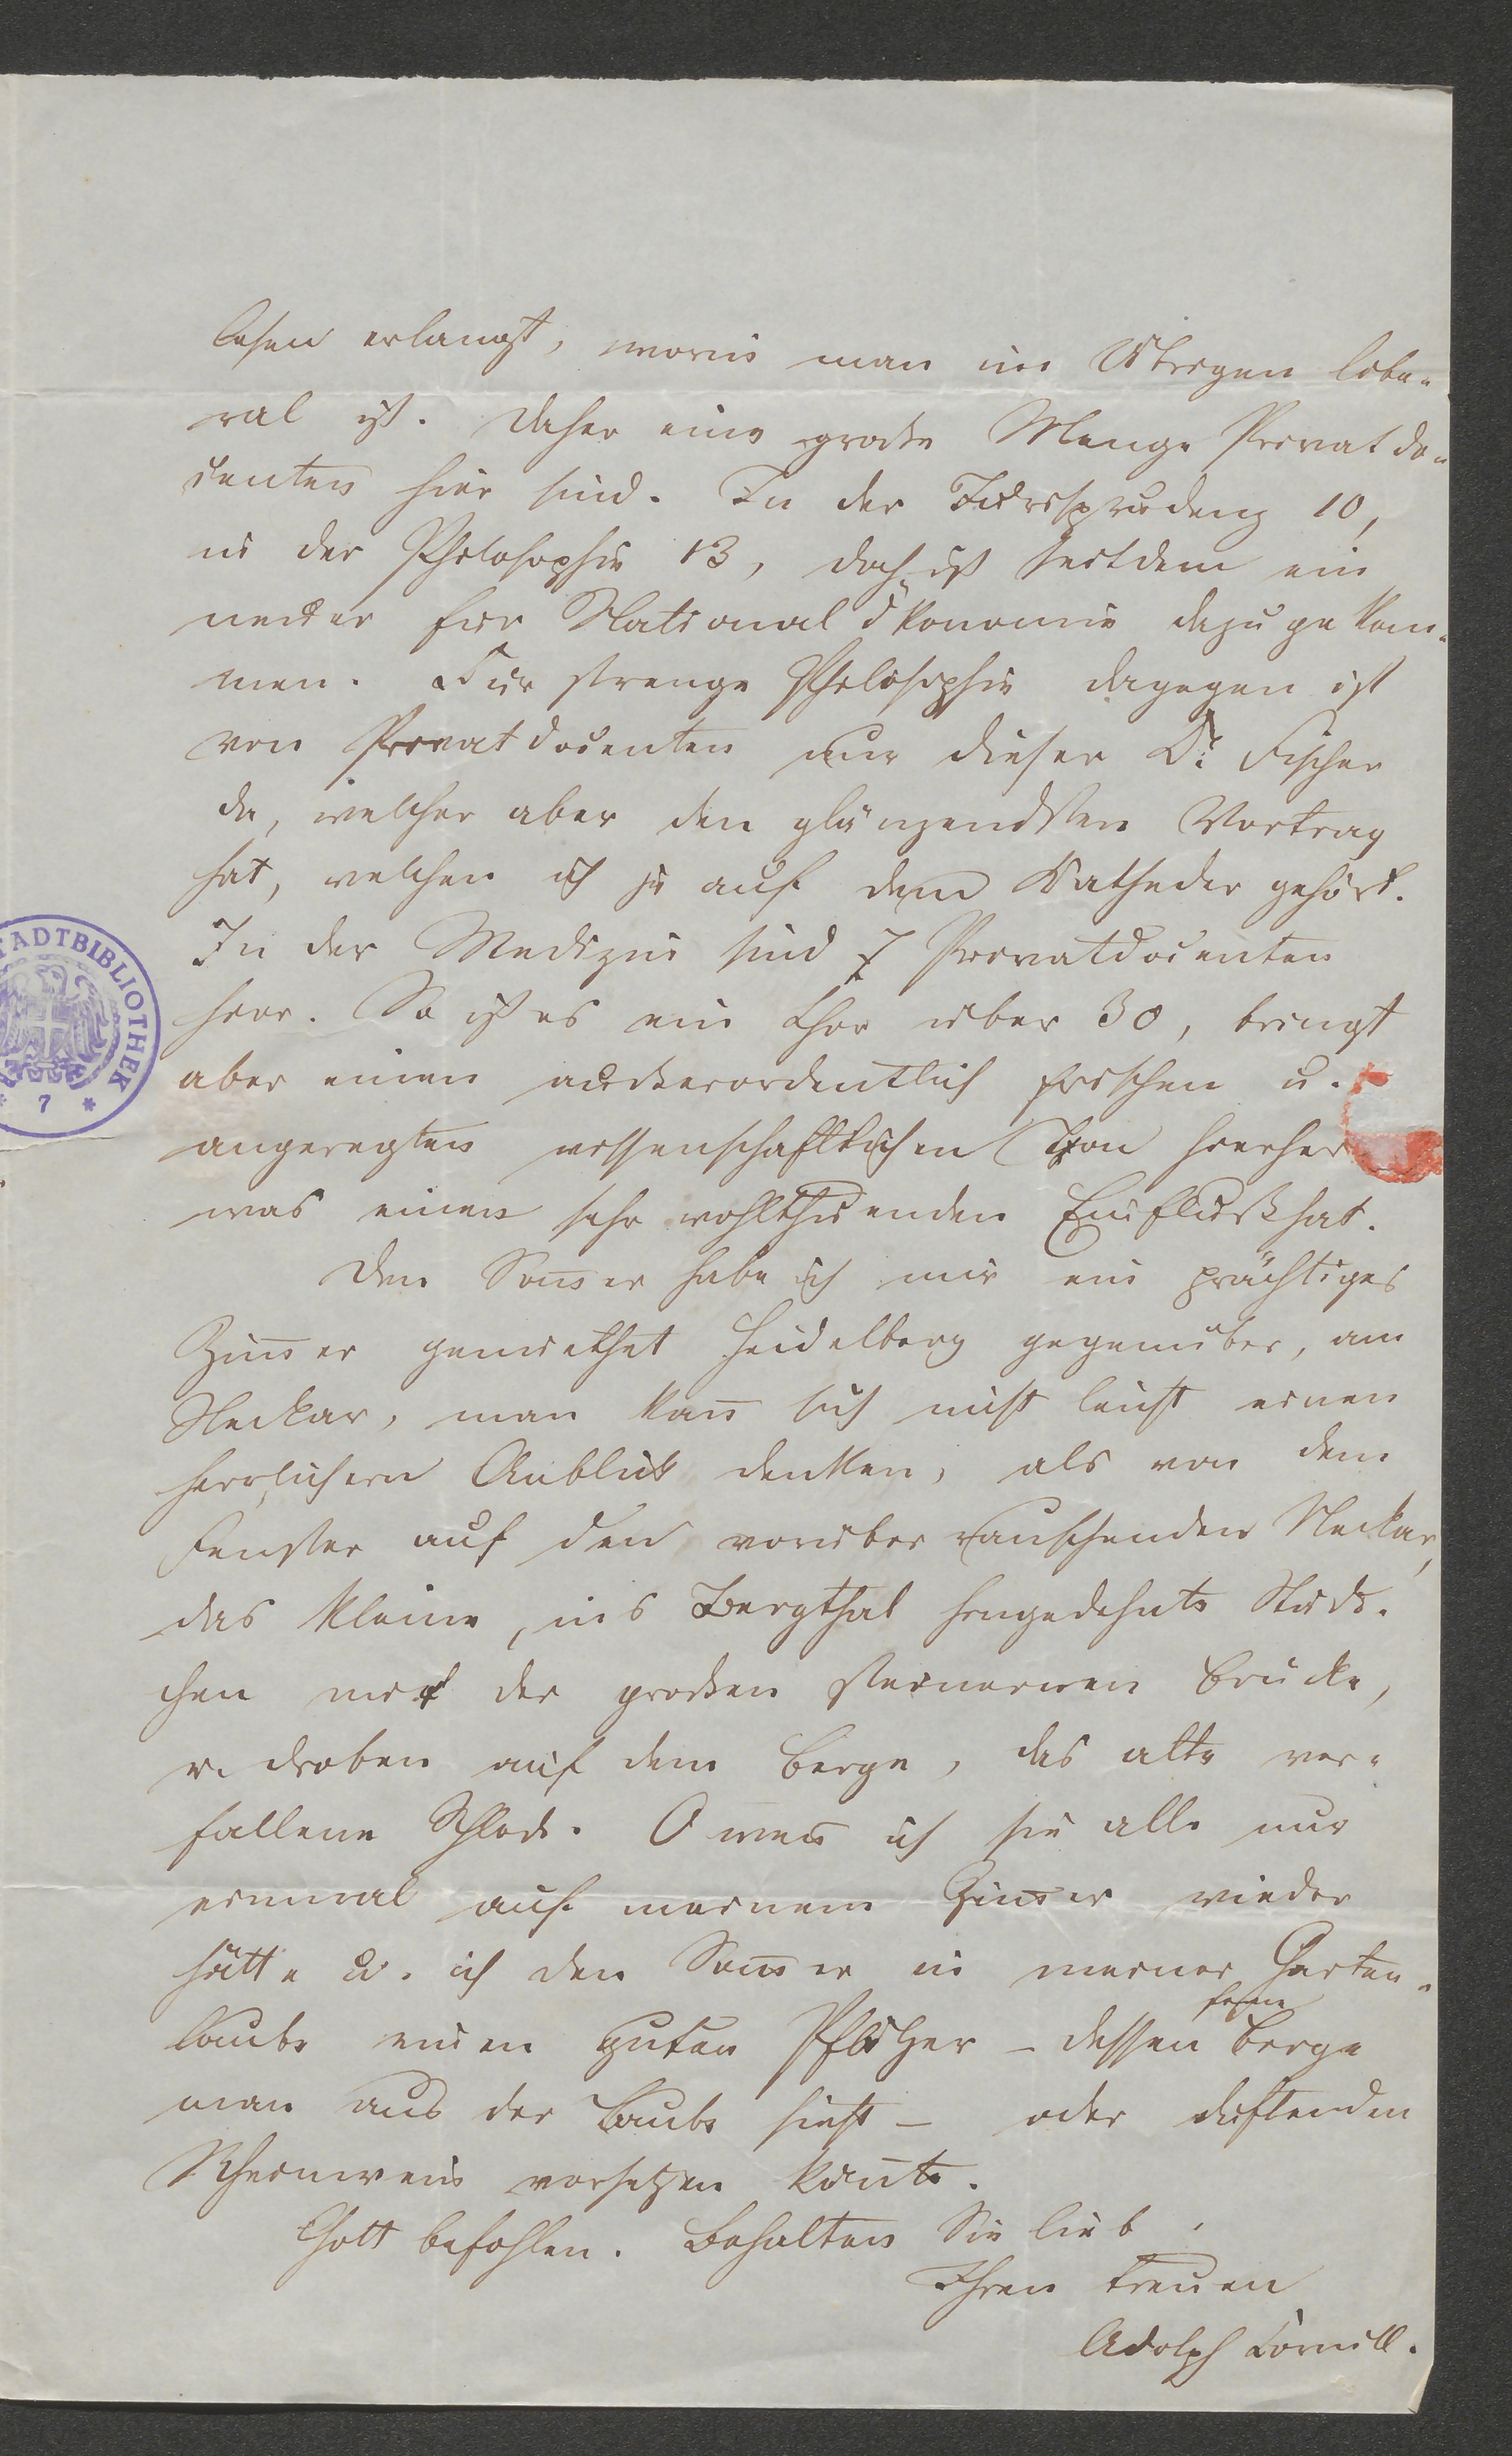 lesen erlangt, worin man im Übrigen libe-
ral ist. Daher eine große Menge Privatdo-
centen hier sind. In der Jurisprudenz 10,
in der Philosophie 13, doch ist seitdem ein
neuer für Nationalökonomie dazu gekom-
men. Für strenge Philosophie dagegen ist
von Privatdocenten nur dieser Dr. Fischer
da, welcher aber den glänzendsten Vortrag
hat, welchen ich je auf dem Katheder gehört.
In der Medizin sind 7 Privatdocenten
hier. So ist es ein Chor über 30, bringt
aber einen außerordentlich frischen u.
angeregten wissenschaftlichen Ton hierher
was einen sehr wohlthuenden Einfluß hat.
Den Som̄er habe ich mir ein prächtiges
Zim̄er gemiethet Heidelberg gegenüber, am
Neckar, man kan̄ sich nicht leicht einen
herrlichern Anblick denken, als von dem
Fenster auf den vorüber rauschenden Neckar,
das kleine, ins Bergthal hingedehnte Städt-
chen mit der großen steinernen Brücke,
u. droben auf dem Berge, das alte ver-
fallene Schloß. O wen̄ ich sie alle nur
einmal auf meinem Zim̄er wieder
hätte u. ich den Som̄er in meiner Garten-
laube einen guten Pfälzer – dessen ferne Berge
man aus der Laube sieht – oder duftenden
Rheinwein vorsetzen kön̄te.
Gott befohlen. Behalten Sie lieb
Ihren treuen
Adolph Cornill.
STADTBIBLIOTHEK
* 7 *